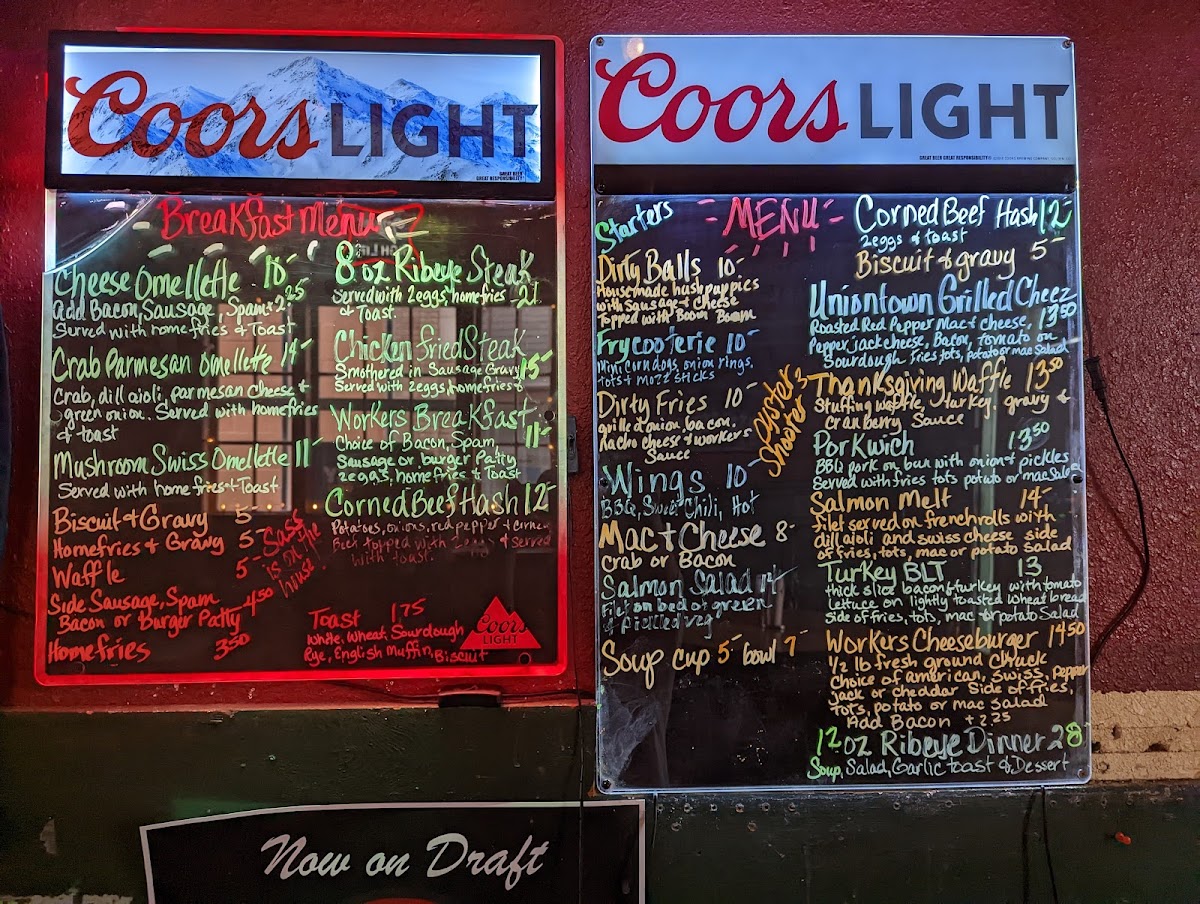 Coors LIGHT
GREAT BEER
GREAT RESPONSIBILITY
Breakfast Menu
Cheese Omellette 10-
Add Bacon, Sausage, Spam + 2.25
Served with homefries & Toast
Crab Parmesan Omellette 14-
Crab, dill aioli, parmesan cheese &
green onion. Served with homefries
& toast
Mushroom Swiss Omellette 11-
Served with homefries & Toast
Biscuit & Gravy 5-
Homefries & Gravy 5-
Waffle 5-
Side Sausage, Spam
Bacon or Burger Patty 4.50
Homefries 3.50
Sass
is on the
house!
8 oz Ribeye Steak
Served with 2eggs, homefries 21
& Toast.
Chicken Fried Steak
Smothered in Sausage Gravy 15-
Served with 2eggs, homefries &
Workers Breakfast
Choice of Bacon, Spam 11-
Sausage or burger Patty
2eggs, homefries & Toast
Corned Beef Hash 12-
Potatoes, onions, red pepper & corned
Beef topped with 2eggs & served
with toast.
Toast 1.75
White, Wheat, Sourdough
Rye, English Muffin, Biscuit
Coors
LIGHT
Coors LIGHT
GREAT BEER GREAT RESPONSIBILITY
MENU
Starters
Dirty Balls 10-
House made hushpuppies
with sausage & cheese
Topped with Boom Boom
Frycooterie 10-
Mini corn dogs, onion rings,
tots & mozz sticks
Dirty Fries 10-
grilled onion, bacon,
nacho cheese & workers
Sauce
Oyster 3
Shooter
Wings 10-
BBQ, Sweet Chili, Hot
Mac & Cheese 8-
Crab or Bacon
Salmon Salad 14-
Filet on bed of green
& pickled veg
Soup cup 5- bowl 7-
Corned Beef Hash 12-
2eggs & toast
Biscuit & gravy 5-
Uniontown Grilled Cheez
Roasted Red Pepper Mac & cheese, 13.50
Pepper jack cheese, Bacon, tomato on
Sourdough fries, tots, potato or mac Salad
Thanksgiving Waffle 13.50
Stuffing waffle, turkey, gravy &
Cranberry Sauce
Porkwich 13.50
BBQ pork on bun with onion & pickles
Served with fries tots potato or mac Salad
Salmon Melt 14-
filet served on french rolls with
dill aioli and swiss cheese side
of fries, tots, mac or potato Salad
Turkey BLT 13
thick slice bacon & turkey with tomato
lettuce on lightly toasted wheat bread
side of fries, tots, mac or potato Salad
Workers Cheeseburger 14.50
1/2 lb fresh ground chuck
choice of american, swiss, pepper
jack or cheddar Side of fries,
tots, potato or mac Salad
Add Bacon + 2.25
12 oz Ribeye Dinner 28
Soup, Salad, Garlic toast & Dessert
Now on Draft